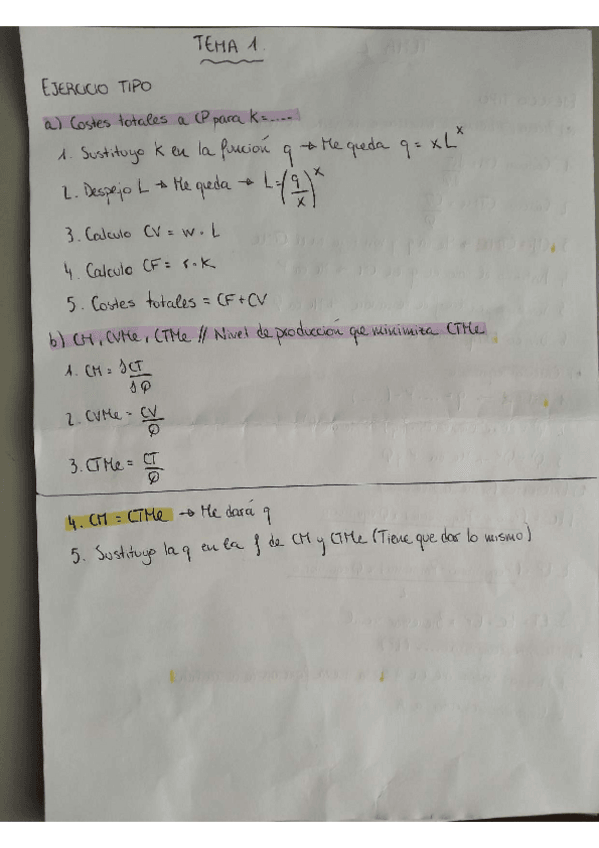 TEMA 1.
EJERCICIO TIPO
a) Costes totales a CP para K=....
1. Sustituyo K en la función q → Me queda q = xL^x
2. Despejo L → Me queda → L=(q/x)^x
3. Calculo CV = w · L
4. Calculo CF = r · K
5. Costes totales = CF + CV
b) CM, CVMe, CTMe // Nivel de producción que minimiza CTMe
1. CM = δCT/δQ
2. CVMe = CV/Q
3. CTMe = CT/Q
4. CM = CTMe → Me dará q
5. Sustituyo la q en la f de CM y CTMe (Tiene que dar lo mismo)